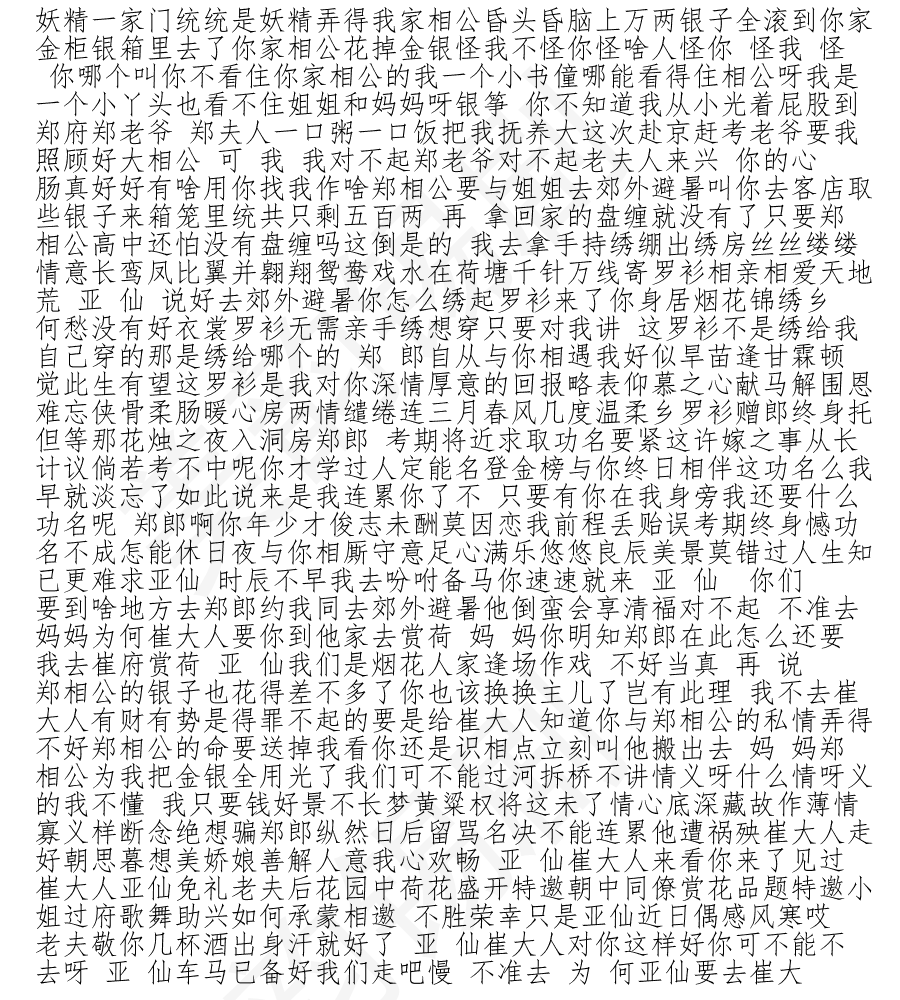 妖精一家门统统是妖精弄得我家相公昏头昏脑上万两银子全滚到你家
金柜银箱里去了你家相公花掉金银怪我不怪你怪啥人怪你 怪我 怪
你哪个叫你不看住你家相公的我一个小书僮哪能看得住相公呀我是
一个小丫头也看不住姐姐和妈妈呀银筝 你不知道我从小光着屁股到
郑府郑老爷 郑夫人一口粥一口饭把我抚养大这次赴京赶考老爷要我
照顾好大相公 可 我 我对不起郑老爷对不起老夫人来兴 你的心
肠真好好有啥用你找我作啥郑相公要与姐姐去郊外避暑叫你去客店取
些银子来箱笼里统共只剩五百两 再 拿回家的盘缠就没有了只要郑
相公高中还怕没有盘缠吗这倒是的 我去拿手持绣绷出绣房丝丝缕缕
情意长鸾凤比翼并翱翔鸳鸯戏水在荷塘千针万线寄罗衫相亲相爱天地
荒 亚 仙 说好去郊外避暑你怎么绣起罗衫来了你身居烟花锦绣乡
何愁没有好衣裳罗衫无需亲手绣想穿只要对我讲 这罗衫不是绣给我
自己穿的那是绣给哪个的 郑 郎自从与你相遇我好似早苗逢甘霖顿
觉此生有望这罗衫是我对你深情厚意的回报略表仰慕之心献马解围恩
难忘侠骨柔肠暖心房两情缱绻连三月春风几度温柔乡罗衫赠郎终身托
但等那花烛之夜入洞房郑郎 考期将近求取功名要紧这许嫁之事从长
计议倘若考不中呢你才学过人定能名登金榜与你终日相伴这功名么我
早就淡忘了如此说来是我连累你了不 只要有你在我身旁我还要什么
功名呢 郑郎啊你年少才俊志未酬莫因恋我前程丢贻误考期终身憾功
名不成怎能休日夜与你相厮守意足心满乐悠悠良辰美景莫错过人生知
己更难求亚仙 时辰不早我去吩咐备马你速速就来 亚 仙 你们
要到啥地方去郑郎约我同去郊外避暑他倒蛮会享清福对不起 不准去
妈妈为何崔大人要你到他家去赏荷 妈 妈你明知郑郎在此怎么还要
我去崔府赏荷 亚 仙我们是烟花人家逢场作戏 不好当真 再 说
郑相公的银子也花得差不多了你也该换换主儿了岂有此理 我不去崔
大人有财有势是得罪不起的要是给崔大人知道你与郑相公的私情弄得
不好郑相公的命要送掉我看你还是识相点立刻叫他搬出去 妈 妈郑
相公为我把金银全用光了我们可不能过河拆桥不讲情义呀什么情呀义
的我不懂 我只要钱好景不长梦黄粱权将这未了情心底深藏故作薄情
寡义样断念绝想骗郑郎纵然日后留骂名决不能连累他遭祸殃崔大人走
好朝思暮想美娇娘善解人意我心欢畅 亚 仙崔大人来看你来了见过
崔大人亚仙免礼老夫后花园中荷花盛开特邀朝中同僚赏花品题特邀小
姐过府歌舞助兴如何承蒙相邀 不胜荣幸只是亚仙近日偶感风寒哎
老夫敬你几杯酒出身汗就好了 亚 仙崔大人对你这样好你可不能不
去呀 亚 仙车马已备好我们走吧慢 不准去 为 何亚仙要去崔大